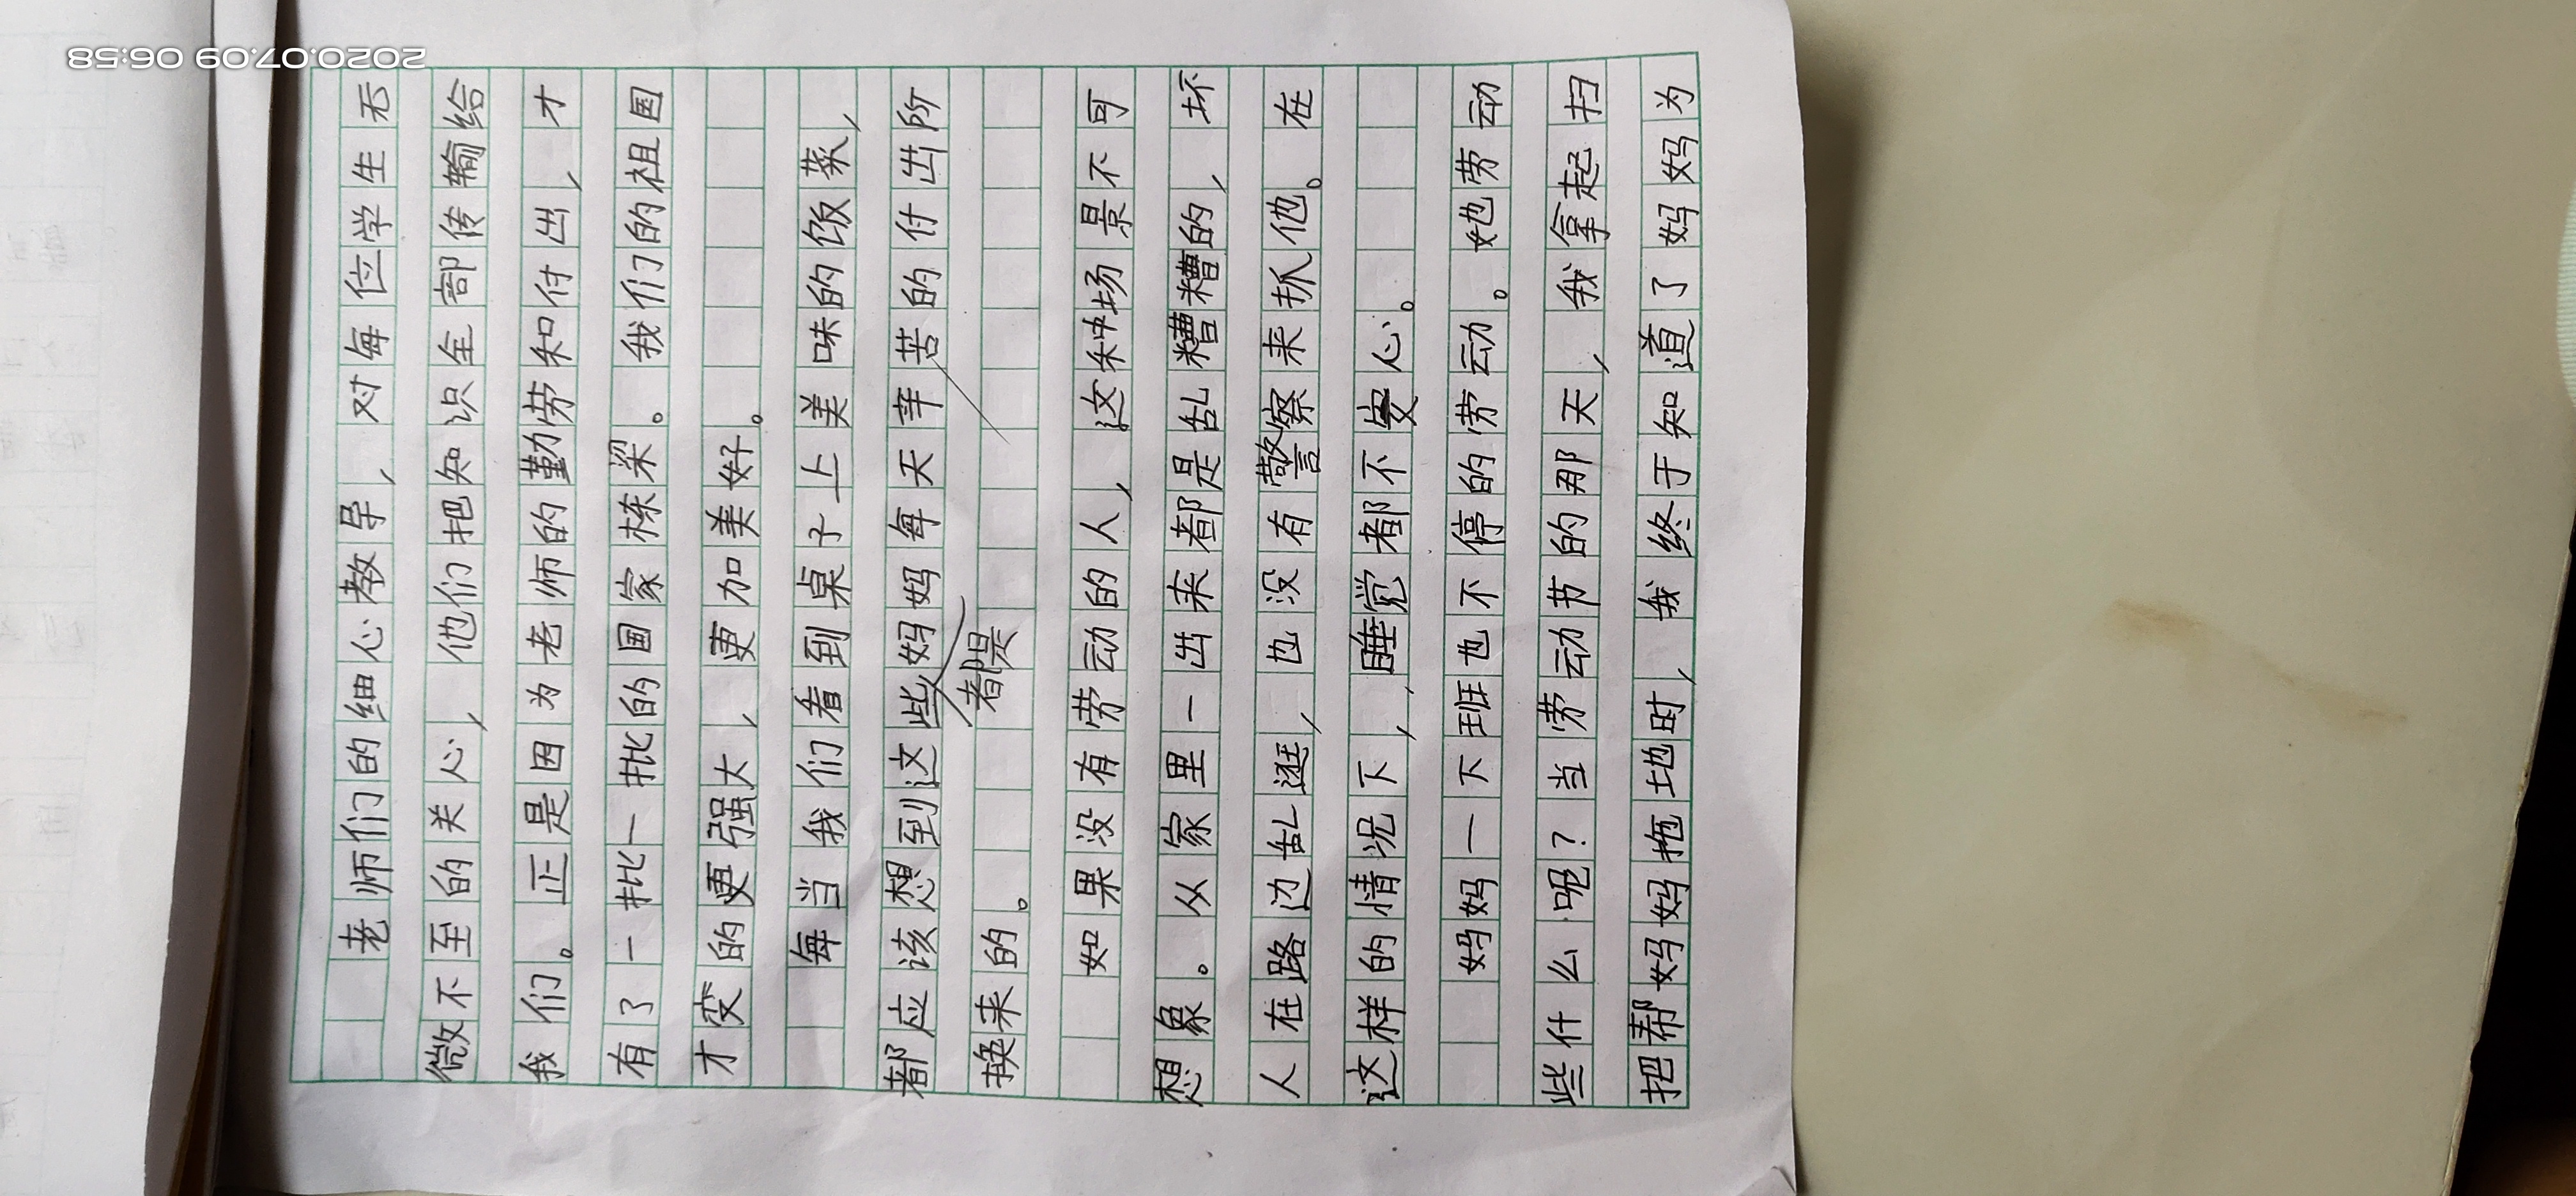 2020.07.09 06:58
老师们的细心教导，对每位学生无
微不至的关心，他们把知识全部传输给
我们。正是因为老师的勤劳和付出，才
有了一批一批的国家栋梁。我们的祖国
才变的更强大，更加美好。
每当我们看到桌子上美味的饭菜，
都应该想到这些都是妈妈每天辛苦的付出所
换来的。
如果没有劳动的人，这种场景不可
想象。从家里一出来都是乱糟糟的，坏
人在路边乱逛，也没有警察来抓他。在
这样的情况下，睡觉都不安心。
妈妈一下班也不停的劳动。她劳动
些什么呢？当劳动节的那天，我拿起扫
把帮妈妈拖地时，我终于知道了妈妈为